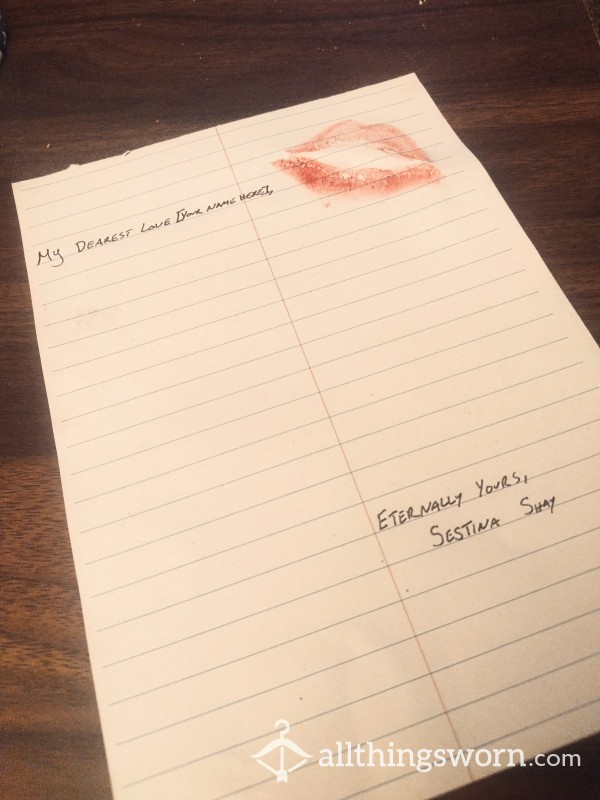 My Dearest Love [Your Name Here],
Eternally Yours,
Sestina Shay
allthingsworn.com